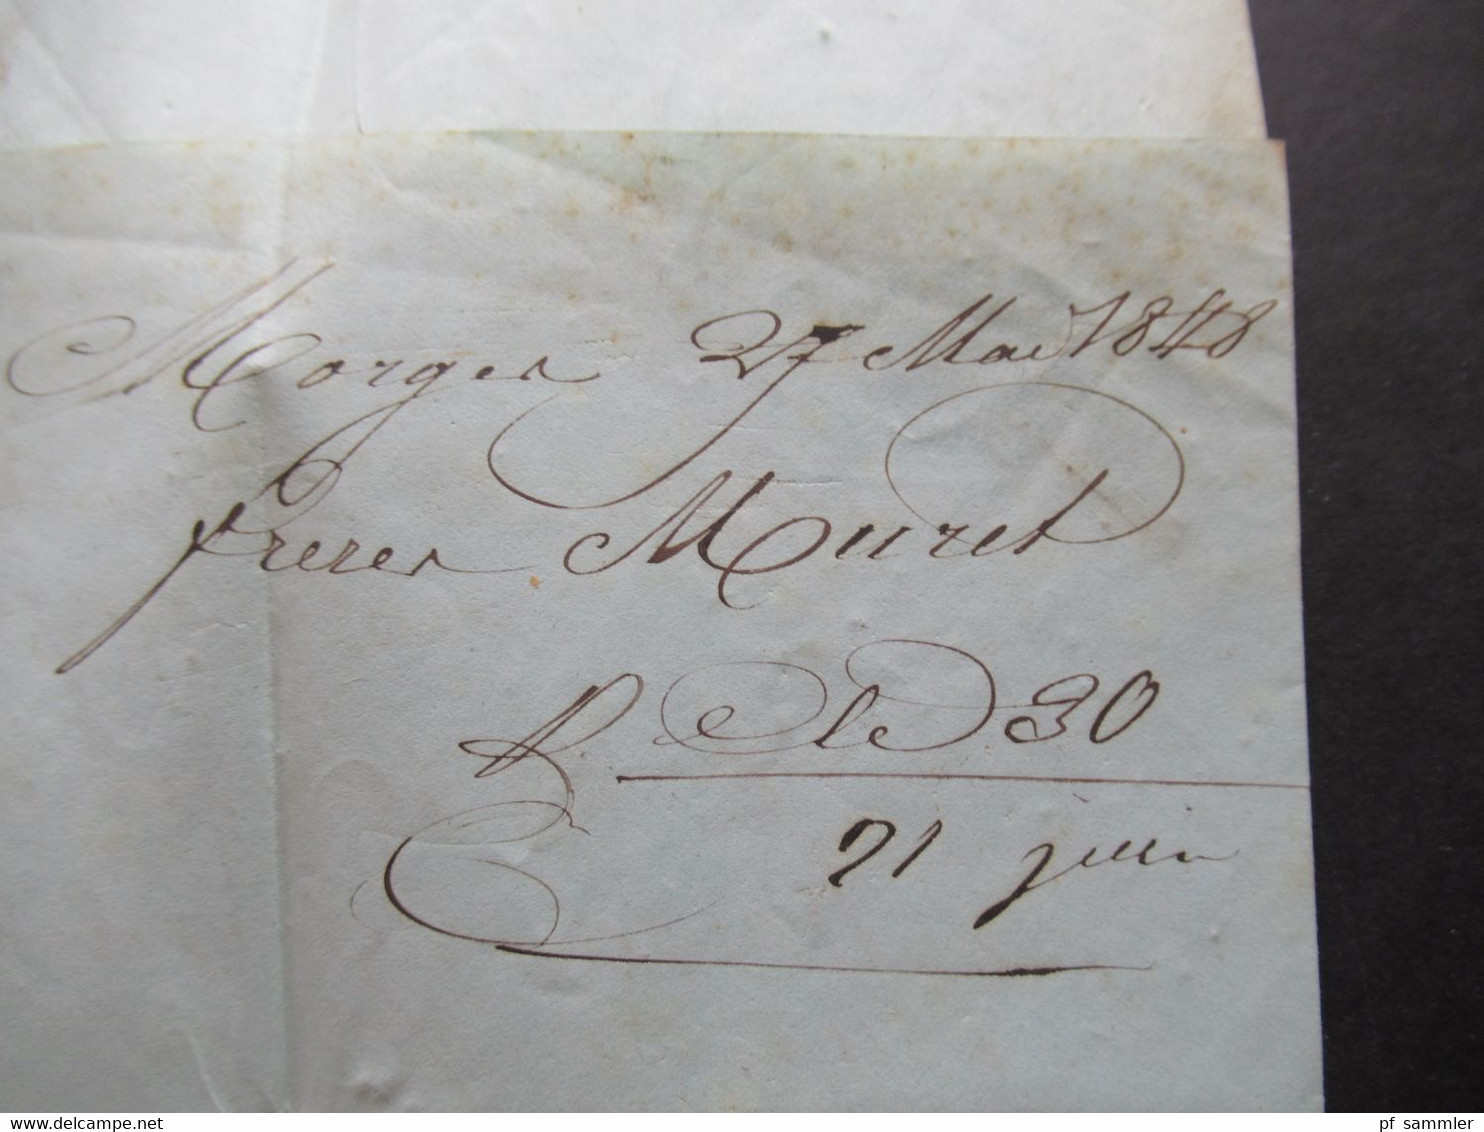 Morges 27 Mai 1848
freres Muret
R le 30
21 juin
www.delcampe.net
pf_sammler